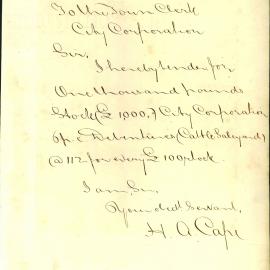 To the Town Clerk
City Corporation
Sir,
I hereby tender for,
One thousand pounds
Stock (£1,000,) City Corporation
6 p.c. Debentures (Cattle Saleyards)
@ 112 for every £100 stock.
I am, Sir,
Your obdt Servant,
H. A. Cape